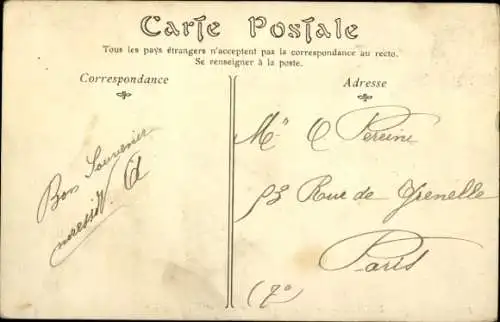 Carte Postale
Tous les pays étrangers n'acceptent pas la correspondance au recto.
Se renseigner à la poste.
Correspondance
Bon Souvenir
Adresse
Pereire
Rue de Grenelle
Paris
(7º